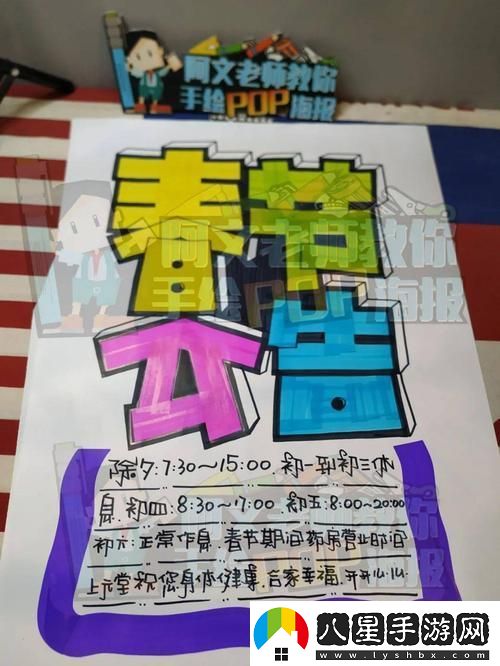 阿文老师教你
手绘POP海报
春节
公告
阿文老师教你
手绘POP海报
除夕7:30~15:00.初一到初三休
息.初四:8:30~17:00.初五:8:00~20:00
初六:正常作息.春节期间药房营业时间
上元堂祝您身体健康.合家幸福.开开心心.
八星手游网
www.lyshbx.com